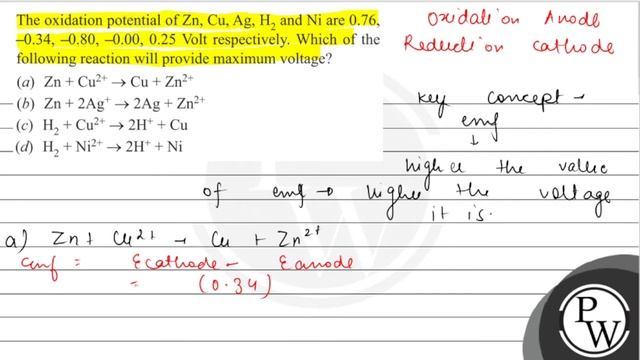 The oxidation potential of Zn, Cu, Ag, H₂ and Ni are 0.76,
–0.34, –0.80, –0.00, 0.25 Volt respectively. Which of the
following reaction will provide maximum voltage?
(a) Zn + Cu²⁺ → Cu + Zn²⁺
(b) Zn + 2Ag⁺ → 2Ag + Zn²⁺
(c) H₂ + Cu²⁺ → 2H⁺ + Cu
(d) H₂ + Ni²⁺ → 2H⁺ + Ni
Oxidation Anode
Reduction cathode
key concept →
emf
↓
higher the value
of emf → higher the voltage
it is.
a) Zn + Cu²⁺ → Cu + Zn²⁺
emf = Ecathode – Eanode
= (0.34)
PW